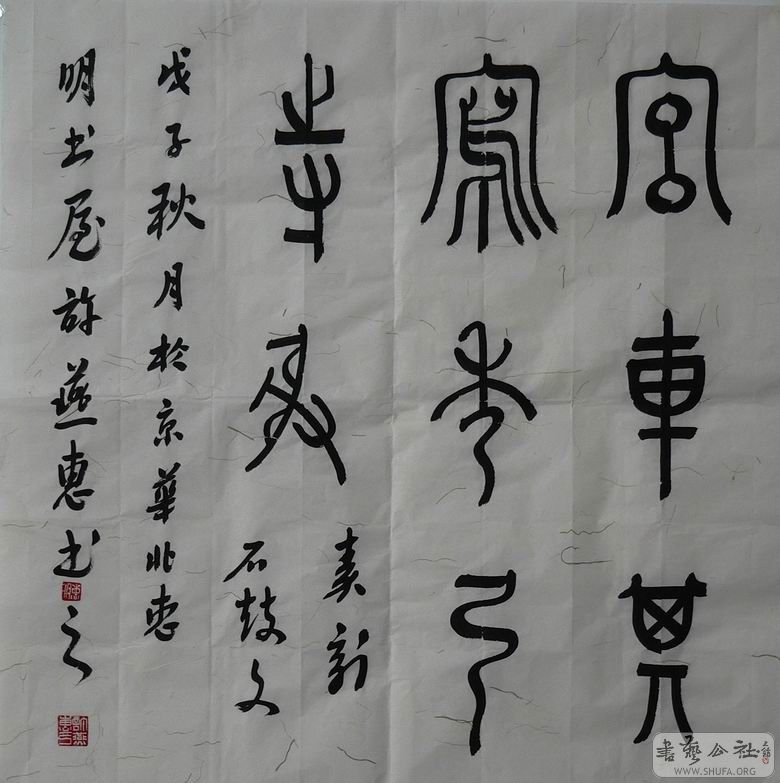 宮車其
寫秀弓
寺射
秦刻
石鼓文
戊子秋月於京華北
明书屋許燕惠书之
書藝公社
WWW.SHUFA.ORG